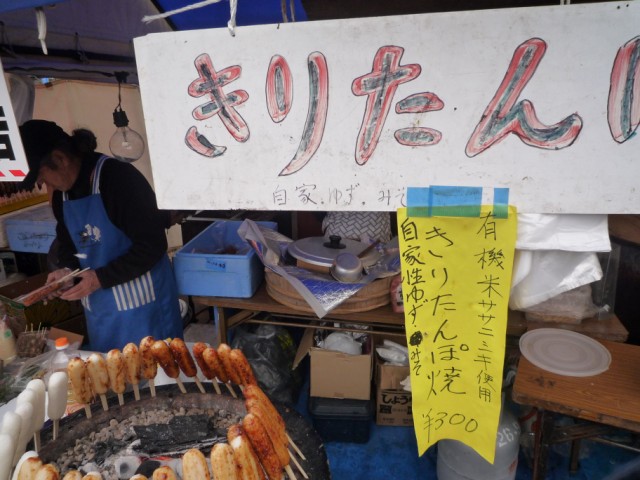 きりたん
自家.ゆず.みそ
有機米ササニシキ使用
きりたんぽ焼
自家ゆずみそ
¥300